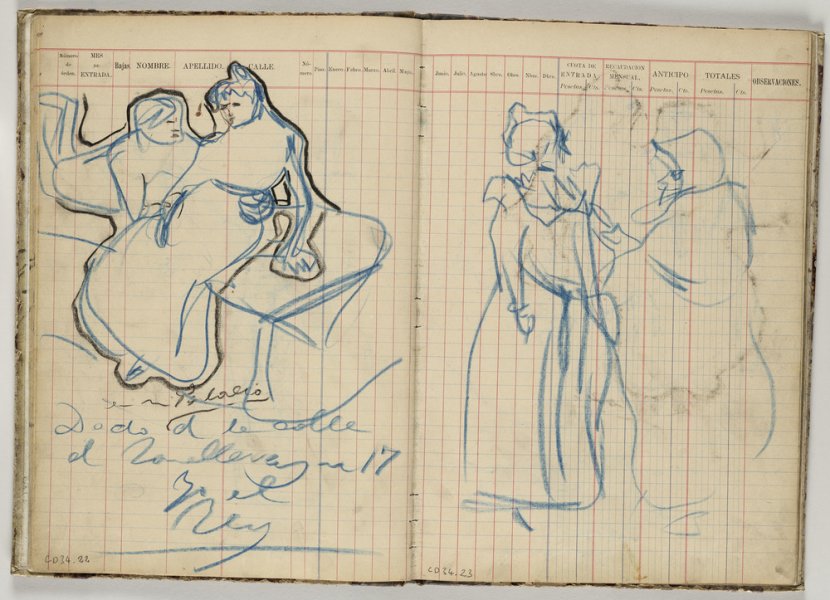 Número de órden.
MES DE ENTRADA.
Bajas
NOMBRE.
APELLIDO.
CALLE.
Número.
Piso.
Enero.
Febro.
Marzo.
Abril.
Mayo.
Junio.
Julio.
Agosto
Sbre.
Obre.
Nbre.
Dbre.
CUOTA DE ENTRADA
Pesetas.
Cts.
RECAUDACION MENSUAL.
Pesetas.
Cts.
ANTICIPO
Pesetas.
Cts.
TOTALES
Pesetas.
Cts.
OBSERVACIONES.
Palacio
Dado d la calle
d 17
Yo el
Rey
CD34.22
CD34.23